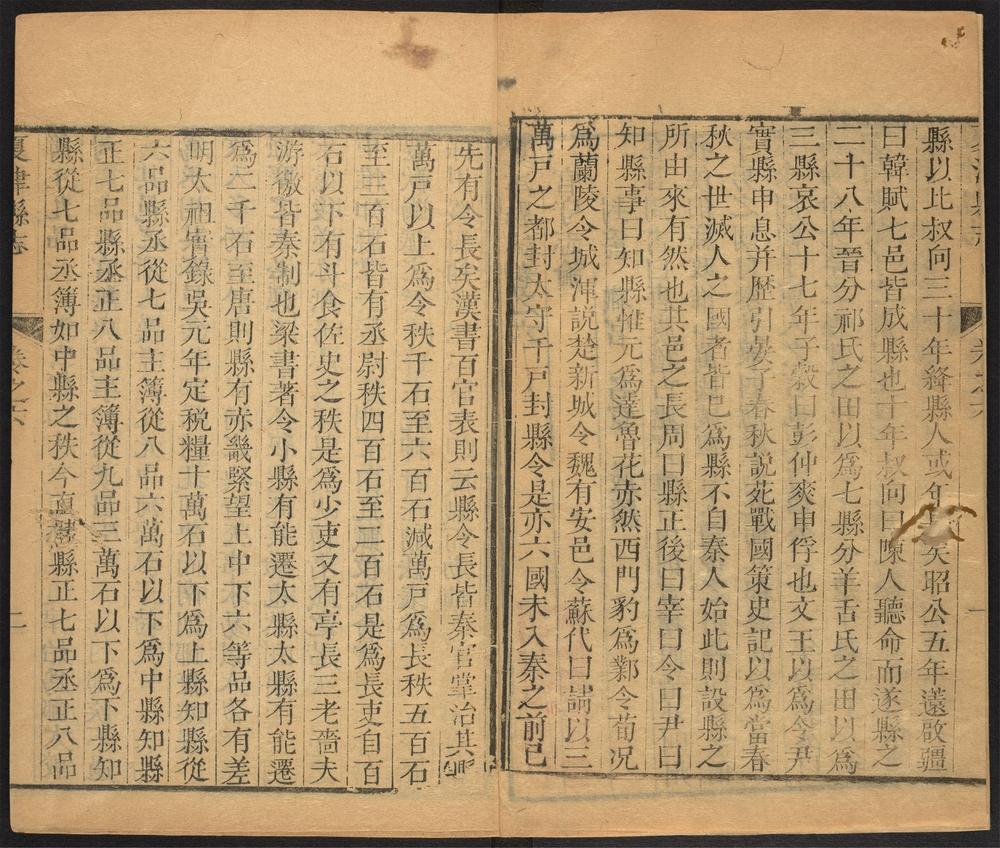 縣以比叔向三十年絳縣人或年長矣昭公五年薳啟疆
曰韓賦七邑皆成縣也十年叔向曰陳人聽命而遂縣之
二十八年晉分祁氏之田以為七縣分羊舌氏之田以為
三縣哀公十七年子穀曰彭仲爽申俘也文王以為令尹
實縣申息并歷引晏子春秋說苑戰國策史記以為當春
秋之世滅人之國者皆已為縣不自秦人始此則設縣之
所由來有然也其邑之長周曰縣正後曰宰曰令曰尹曰
知縣事曰知縣惟元為達魯花赤然西門豹為鄴令荀况
為蘭陵令城渾説楚新城令魏有安邑令蘇代曰請以三
萬戸之都封太守千戸封縣令是亦六國未入秦之前已
先有令長矣漢書百官表則云縣令長皆秦官掌治其縣
萬戸以上為令秩千石至六百石減萬戸為長秩五百石
至三百石皆有丞尉秩四百石至二百石是為長吏自百
石以下有斗食佐史之秩是為少吏又有亭長三老嗇夫
游徼皆秦制也梁書著令小縣有能遷大縣大縣有能遷
為二千石至唐則縣有赤畿緊望上中下六等品各有差
明太祖實錄吳元年定税糧十萬石以下為上縣知縣從
六品縣丞從七品主簿從八品六萬石以下為中縣知縣
正七品縣丞正八品主簿從九品三萬石以下為下縣知
縣從七品丞簿如中縣之秩今直隸縣正七品丞正八品
夏津縣志
卷之六
二